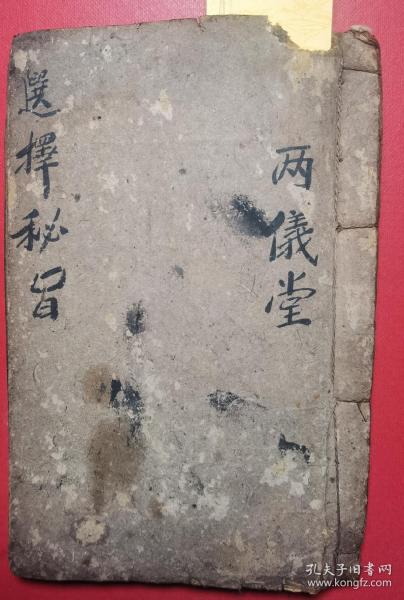 两儀堂
選擇秘旨
孔夫子旧书网
www.kongfz.com